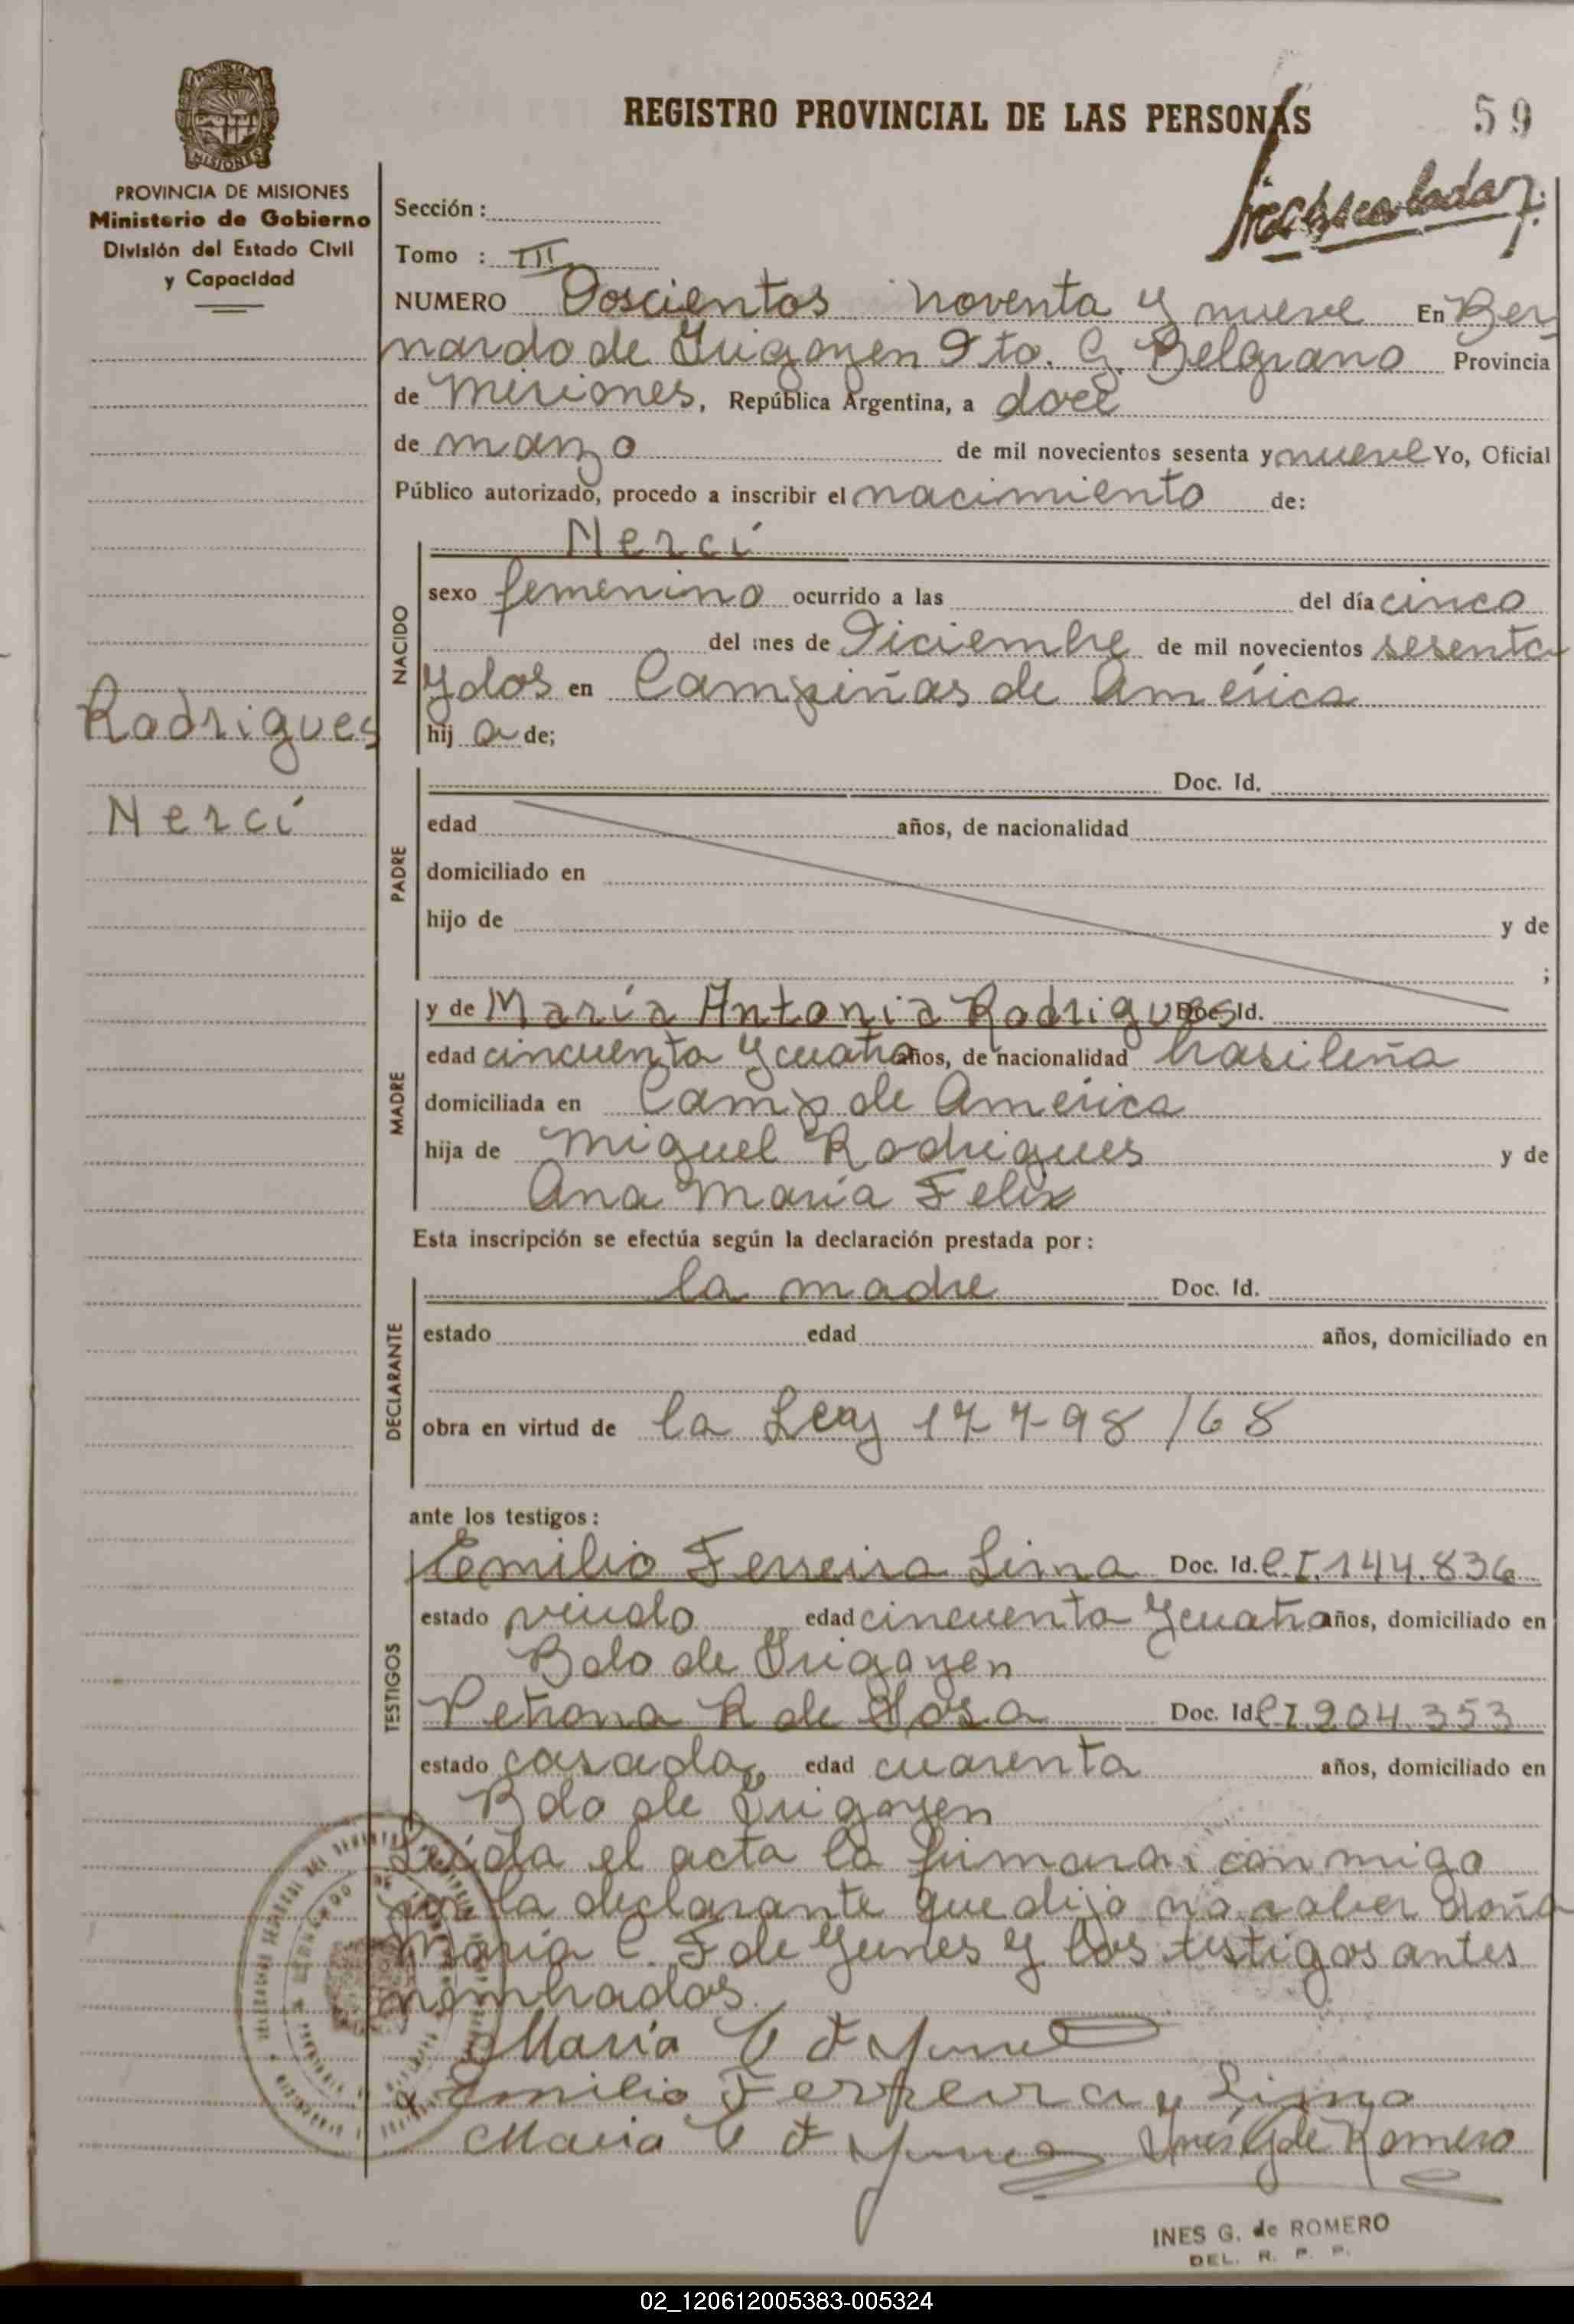 REGISTRO PROVINCIAL DE LAS PERSONAS
59
MISIONES
PROVINCIA DE MISIONES
Ministerio de Gobierno
División del Estado Civil
y Capacidad
Sección :
Tomo : III
NUMERO Doscientos noventa y nueve En Ber
nardo de Irigoyen Dto. G. Belgrano Provincia
de misiones, República Argentina, a doce
de marzo de mil novecientos sesenta y nueve Yo, Oficial
Público autorizado, procedo a inscribir el nacimiento de:
Nerci
NACIDO
sexo femenino ocurrido a las del día cinco
del mes de Diciembre de mil novecientos sesenta
y dos en Campiñas de América
hij a de;
Rodrigues
Nercí
PADRE
Doc. Id.
edad años, de nacionalidad
domiciliado en
hijo de y de
;
MADRE
y de María Antonia Rodrigues Doc. Id.
edad cincuenta y cuatro años, de nacionalidad brasileña
domiciliada en Camp de América
hija de miguel Rodrigues y de
Ana maría Felix
Esta inscripción se efectúa según la declaración prestada por :
DECLARANTE
la madre Doc. Id.
estado edad años, domiciliado en
obra en virtud de la Ley 17798/68
ante los testigos :
TESTIGOS
Emilio Ferreira Lima Doc. Id. C.I. 144.836
estado viudo edad cincuenta y cuatro años, domiciliado en
Bdo de Irigoyen
Petrona R de Sosa Doc. Id C I 904.353
estado casada edad cuarenta años, domiciliado en
Bdo de Irigoyen
Leída el acta la firmaran conmigo
por la declarante que dijo no saber doña
María C. F de Yunes y los testigos antes
nombrados.
María C F
Emilio Ferreira Lima
María C F Inés G de Romero
INES G. de ROMERO
DEL. R. P. P.
02_120612005383-005324